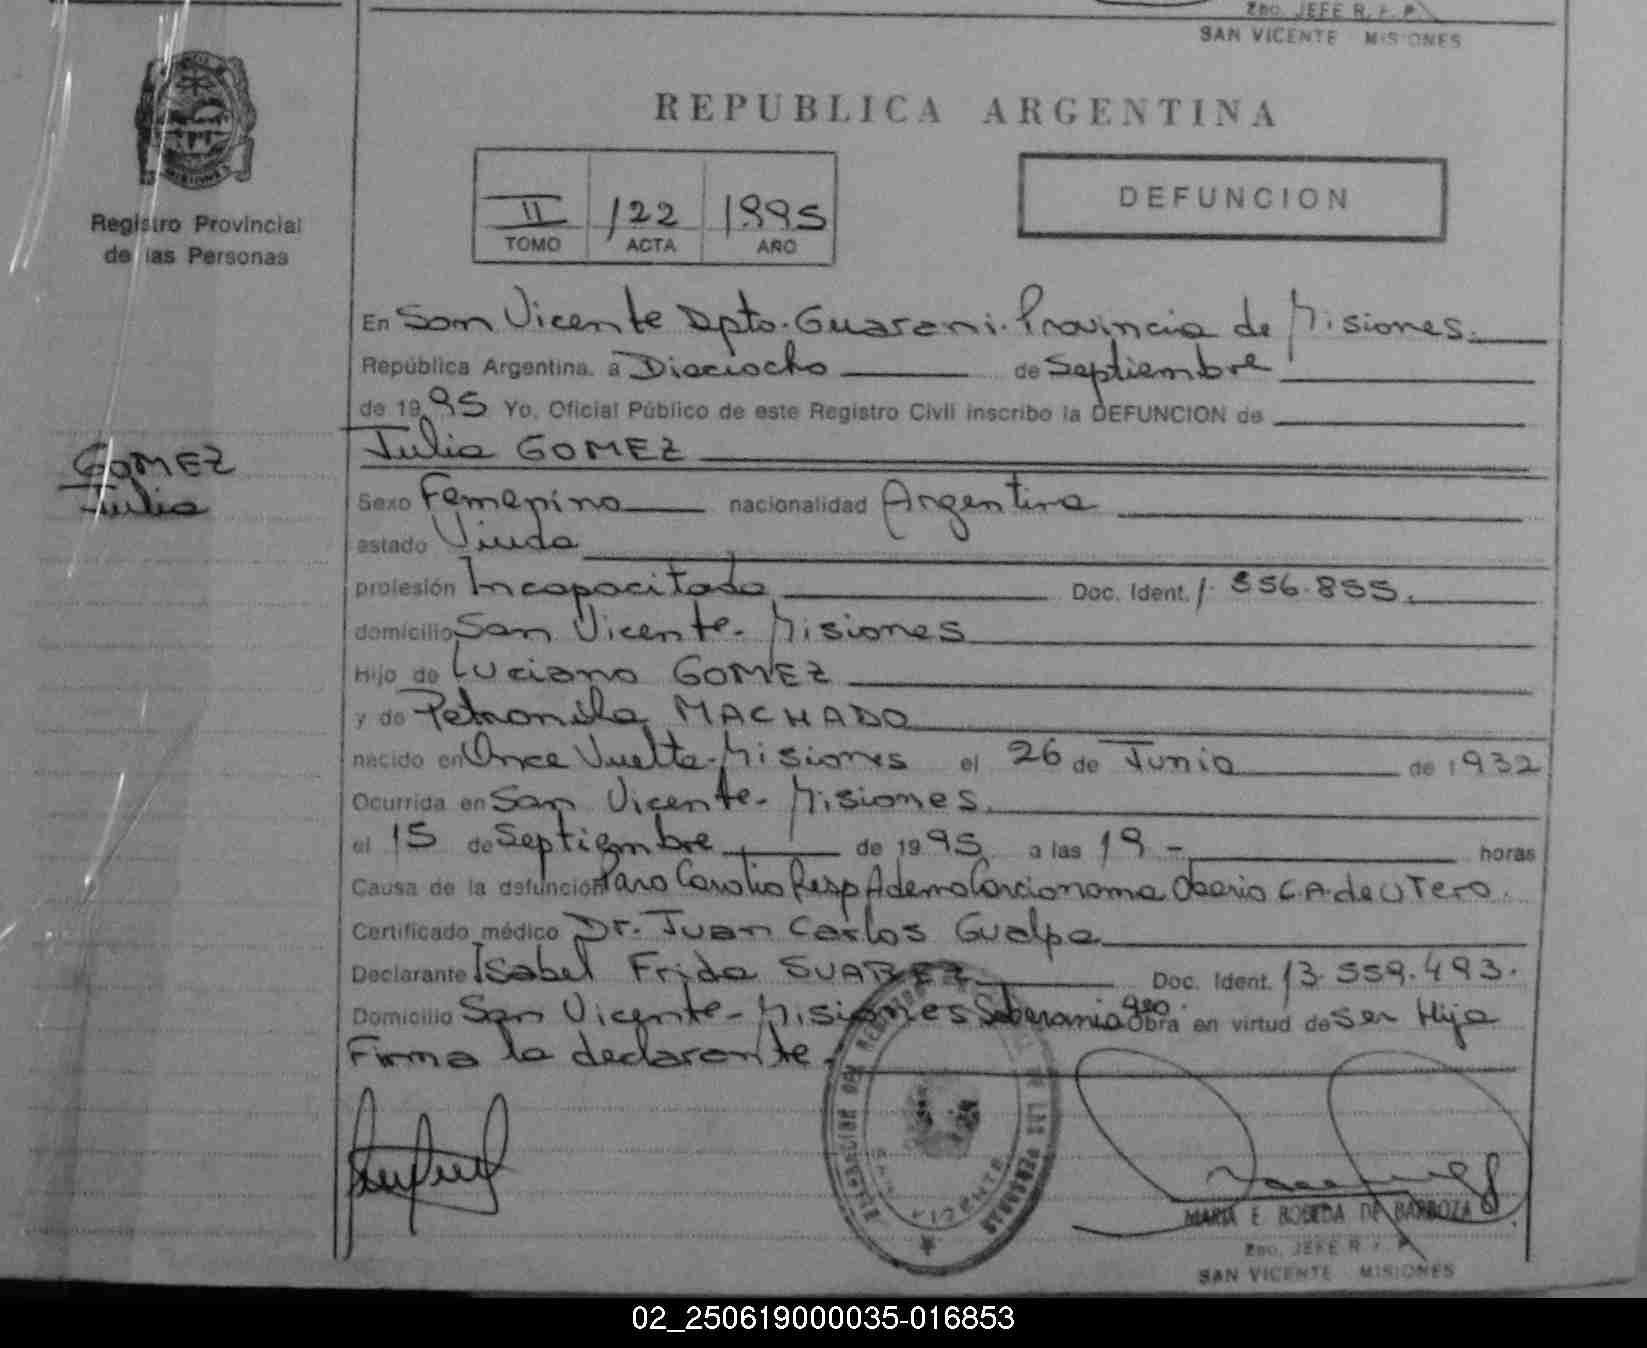 2do. JEFE R. P. P.
SAN VICENTE MISIONES
MISIONES
Registro Provincial
de las Personas
REPUBLICA ARGENTINA
II 122 1995
TOMO ACTA AÑO
DEFUNCION
En San Vicente Dpto. Guarani. Provincia de Misiones.
República Argentina. a Dieciocho de Septiembre
de 1995 Yo, Oficial Público de este Registro Civil inscribo la DEFUNCION de
Julia GOMEZ
GOMEZ
Julia
Sexo Femenino nacionalidad Argentina
estado Viuda
profesión Incapacitada Doc. Ident. 1.556.855.
domicilio San Vicente - Misiones
Hijo de Luciano GOMEZ
y de Petronila MACHADO
nacido en Once Vuelta - Misiones el 26 de Junio de 1932
Ocurrida en San Vicente - Misiones.
el 15 de Septiembre de 1995 a las 19 - horas
Causa de la defunción Paro Cardio Resp Adenocarcionoma Obario C.A. de UTero.
Certificado médico Dr. Juan Carlos Gualpa
Declarante Isabel Frida SUAREZ Doc. Ident. 13.559.493.
Domicilio San Vicente - Misiones Soberania Obra en virtud de ser Hija
Firma la declarante.
DEL REGISTRO DE LAS PERSONAS
SAN VICENTE
MARIA E. BOBEDA DE BARBOZA
2do. JEFE R. P. P.
SAN VICENTE MISIONES
02_250619000035-016853